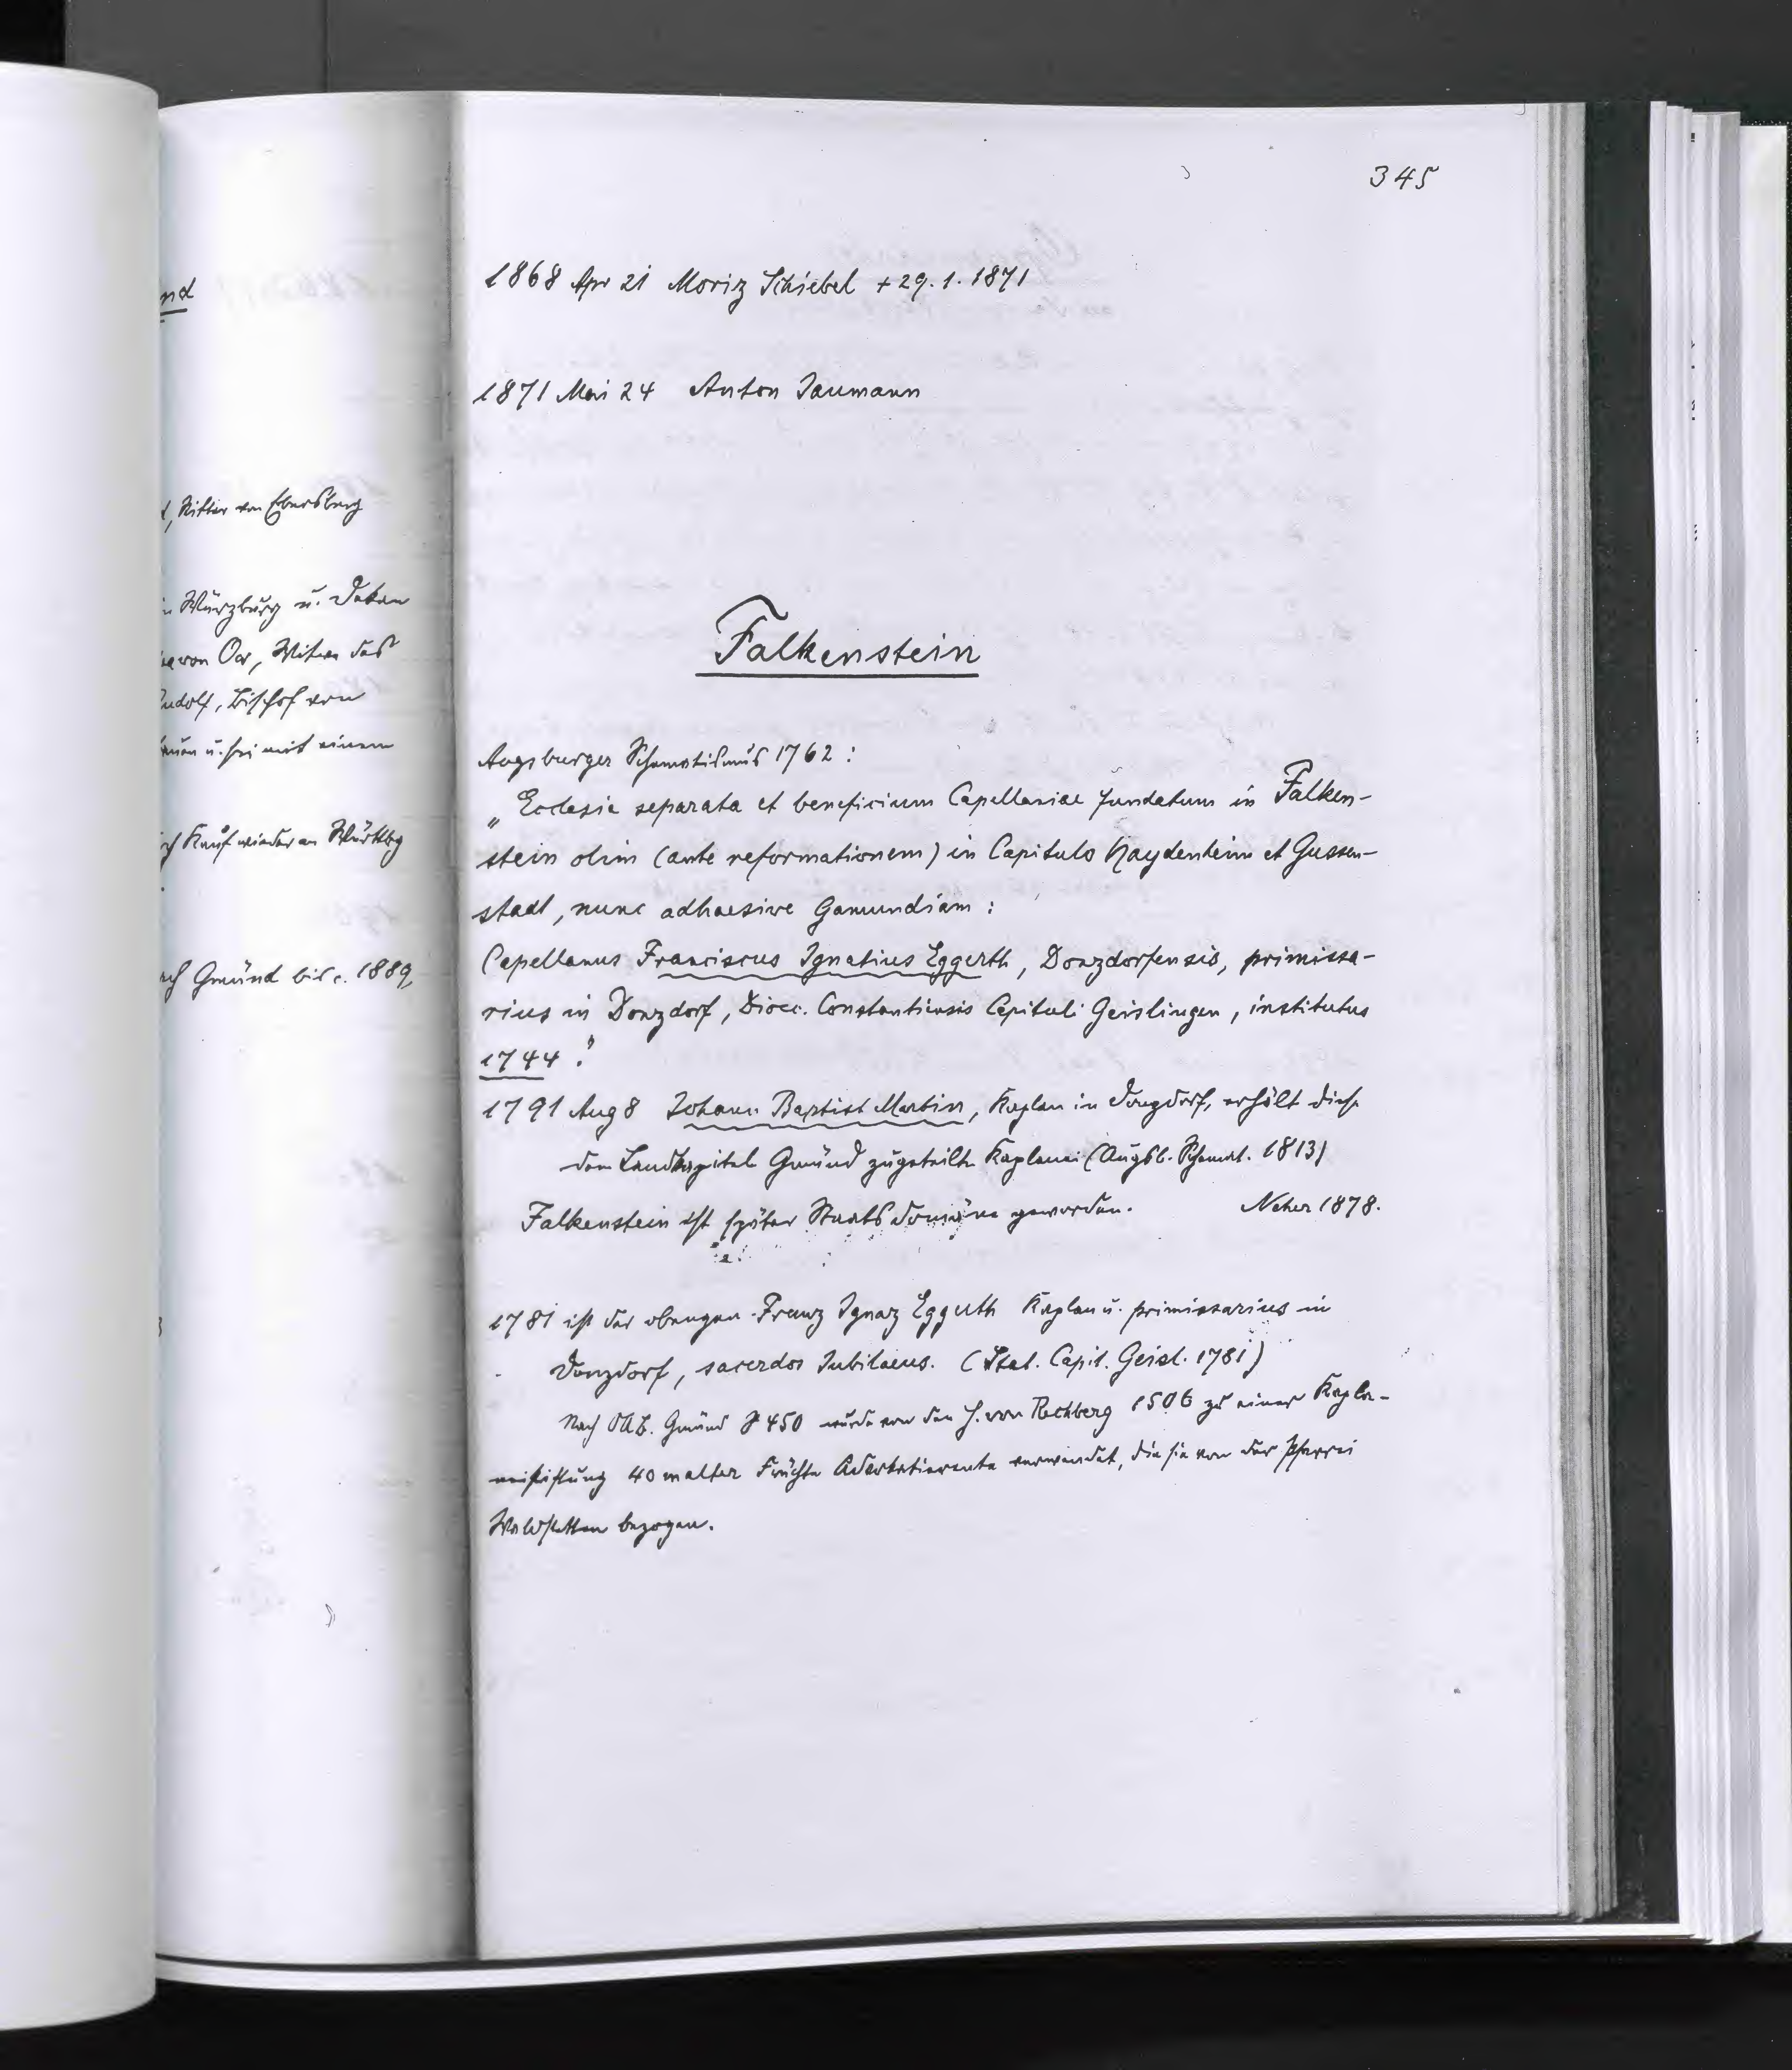 nd
, Ritter von Ebersberg
in Würzburg u. Dekan
von Ow, Witwe des
Rudolf, Bischof von
u. sei mit einem
ch Kauf wieder an Württbg
ach Gmünd bis c. 1889
345
1868 Apr 21 Moriz Schiebel + 29. 1. 1871
1871 Mai 24 Anton Jaumann
Falkenstein
Augsburger Schematismus 1762 :
„Ecclesia separata et beneficium Capellaniae fundatum in Falken-
stein olim (ante reformationem) in Capitulo Haydenheim et Gussen-
stadt, nunc adhaesive Gamundiam :
Capellanus Franciscus Ignatius Eggerth, Donzdorfensis, primissa-
rius in Donzdorf, Dioec. Constantiensis Capituli Geislingen, institutus
1744."
1791 Aug 8 Johann Baptist Martin, Kaplan in Donzdorf, erhält diese
dem Landkapitel Gmünd zugeteilte Kaplanei (Augsb. Schemat. 1813)
Falkenstein ist später Staatsdomäne geworden. Neher 1878.
1781 ist der obengen. Franz Ignaz Eggerth Kaplan u. primissarius in
Donzdorf, sacerdos Jubilaeus. (Stat. Capit. Geisl. 1781)
Nach OAB. Gmünd S 450 wurde von den H. von Rechberg 1506 zu einer Kapla-
neistiftung 40 malter Früchte verwendet, die sie von der Pfarrei
Waldstetten bezogen.